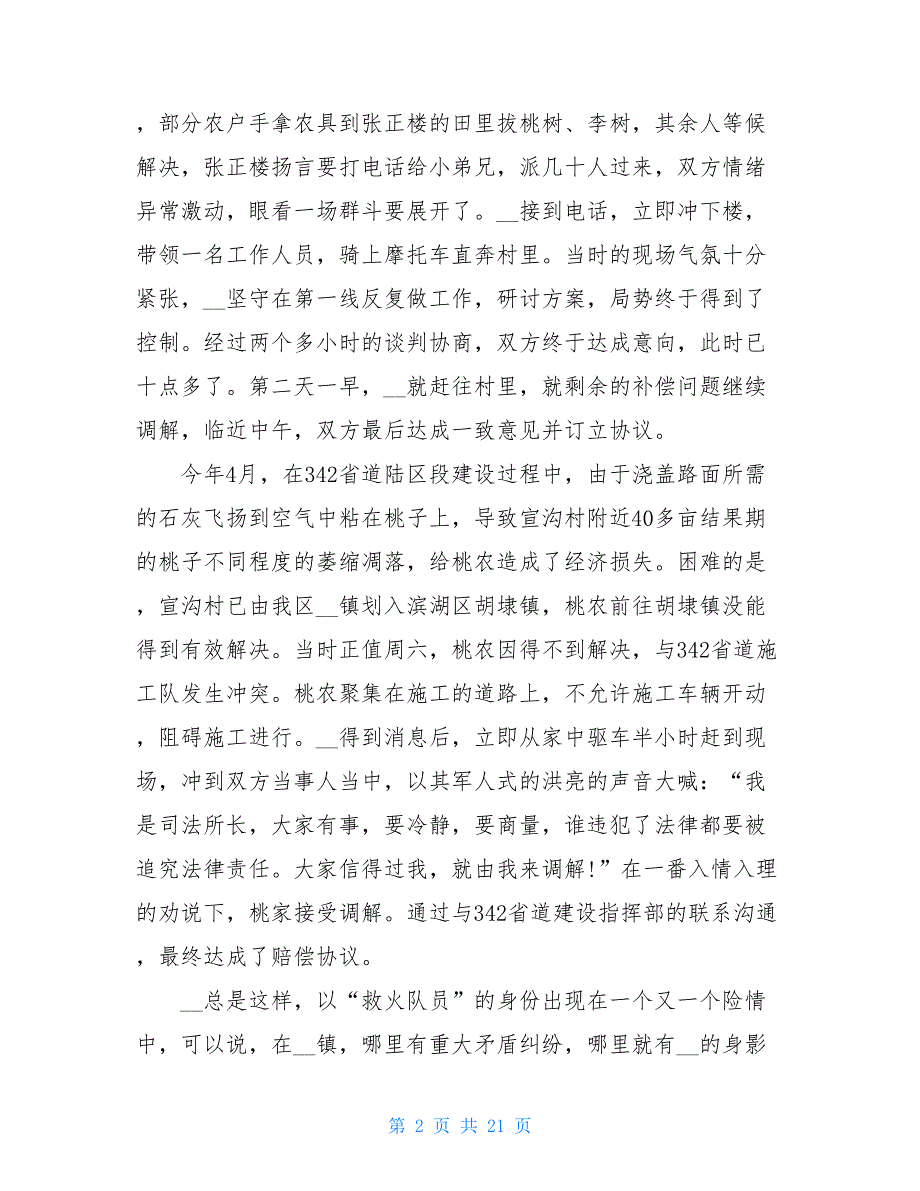 ，部分农户手拿农具到张正楼的田里拔桃树、李树，其余人等候
解决，张正楼扬言要打电话给小弟兄，派几十人过来，双方情绪
异常激动，眼看一场群斗要展开了。__接到电话，立即冲下楼，
带领一名工作人员，骑上摩托车直奔村里。当时的现场气氛十分
紧张，__坚守在第一线反复做工作，研讨方案，局势终于得到了
控制。经过两个多小时的谈判协商，双方终于达成意向，此时已
十点多了。第二天一早，__就赶往村里，就剩余的补偿问题继续
调解，临近中午，双方最后达成一致意见并订立协议。
今年4月，在342省道陆区段建设过程中，由于浇盖路面所需
的石灰飞扬到空气中粘在桃子上，导致宣沟村附近40多亩结果期
的桃子不同程度的萎缩凋落，给桃农造成了经济损失。困难的是
，宣沟村已由我区__镇划入滨湖区胡埭镇，桃农前往胡埭镇没能
得到有效解决。当时正值周六，桃农因得不到解决，与342省道施
工队发生冲突。桃农聚集在施工的道路上，不允许施工车辆开动
，阻碍施工进行。__得到消息后，立即从家中驱车半小时赶到现
场，冲到双方当事人当中，以其军人式的洪亮的声音大喊：“我
是司法所长，大家有事，要冷静，要商量，谁违犯了法律都要被
追究法律责任。大家信得过我，就由我来调解!”在一番入情入理
的劝说下，桃家接受调解。通过与342省道建设指挥部的联系沟通
，最终达成了赔偿协议。
__总是这样，以“救火队员”的身份出现在一个又一个险情
中，可以说，在__镇，哪里有重大矛盾纠纷，哪里就有__的身影
第 2 页 共 21 页